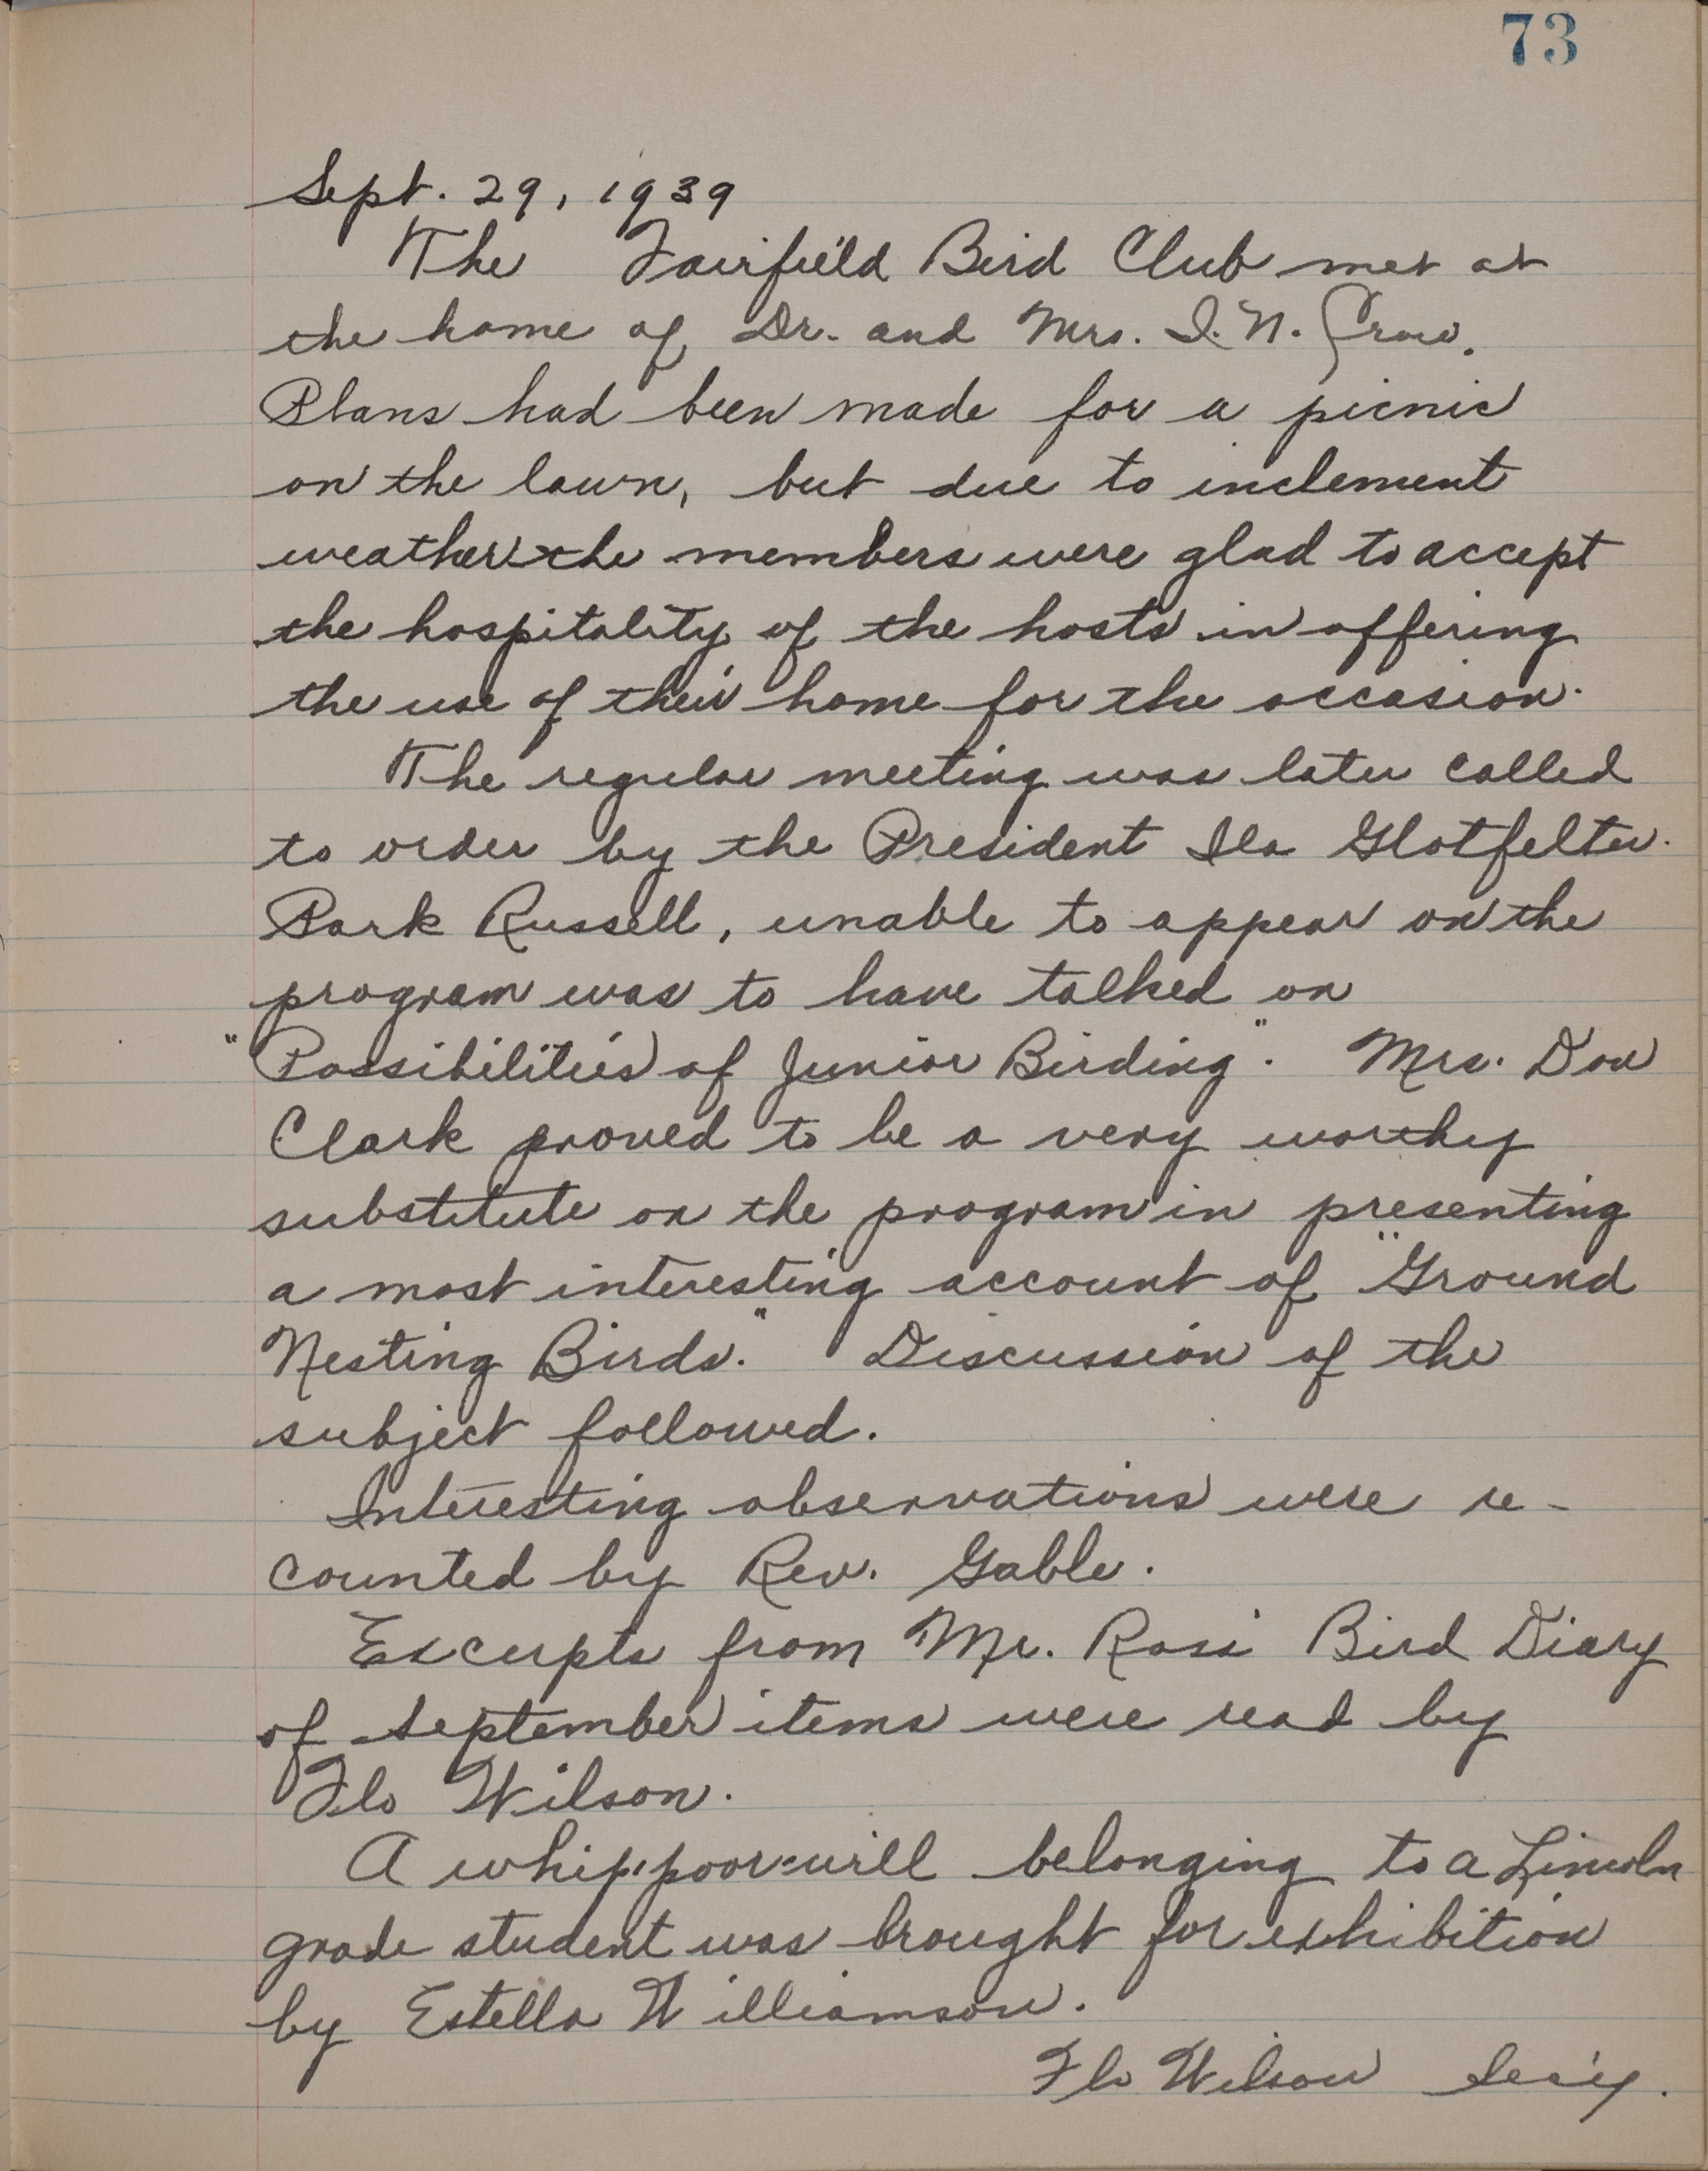 73
Sept. 29, 1939
The Fairfield Bird Club met at
the home of Dr. and Mrs. I. N. Crow.
Plans had been made for a picnic
on the lawn, but due to inclement
weather the members were glad to accept
the hospitality of the hosts in offering
the use of their home for the occasion.
The regular meeting was later called
to order by the President Ila Glotfelter.
Park Russell, unable to appear on the
program was to have talked on
"Possibilities of Junior Birding". Mrs. Don
Clark proved to be a very worthy
substitute on the program in presenting
a most interesting account of "Ground
Nesting Birds." Discussion of the
subject followed.
Interesting observations were re-
counted by Rev. Gable.
Excerpts from Mr. Ross' Bird Diary
of September items were read by
Flo Wilson.
A whip-poor-will belonging to a Lincoln
grade student was brought for exhibition
by Estella Williamson.
Flo Wilson Sec'y.